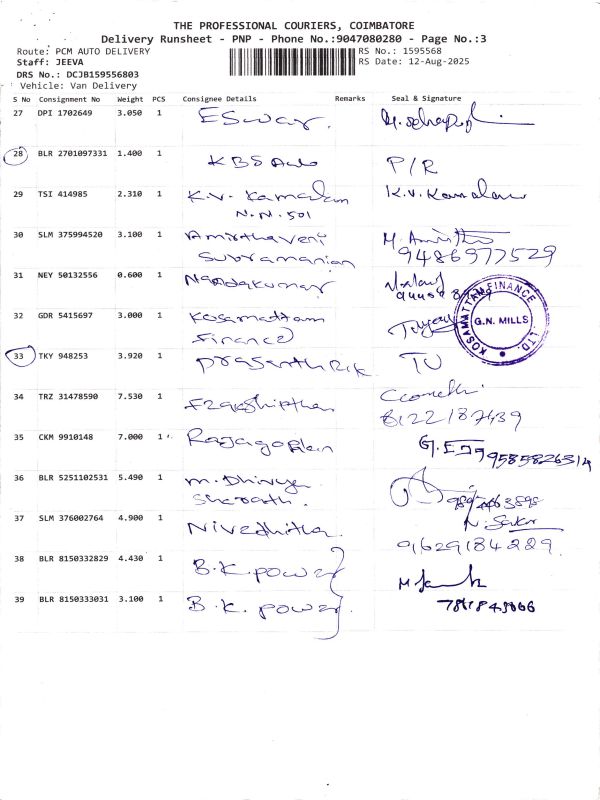 THE PROFESSIONAL COURIERS, COIMBATORE
Delivery Runsheet - PNP - Phone No.:9047080280 - Page No.:3
Route: PCM AUTO DELIVERY RS No.: 1595568
Staff: JEEVA RS Date: 12-Aug-2025
DRS No.: DCJB159556803
Vehicle: Van Delivery
S No Consignment No Weight PCS Consignee Details Remarks Seal & Signature
27 DPI 1702649 3.050 1 ESwar.
28 BLR 2701097331 1.400 1 KBS Auto P/R
29 TSI 414985 2.310 1 K.V. Kamalam K.V. Kamalam
N.N. 501
30 SLM 375994520 3.100 1 Amirthaveni
Subramanian 9486977529
31 NEY 50132556 0.600 1 Nandakumar
32 GDR 5415697 3.000 1 Kosamattam
Finance
KOSAMATTAM FINANCE LTD. G.N. MILLS
33 TKY 948253 3.920 1 Prasanth RK TU
34 TRZ 31478590 7.530 1
8122187439
35 CKM 9910148 7.000 1 Rajagopalan 9585826314
36 BLR 5251102531 5.490 1 M. Dhivya
Sharath.
37 SLM 376002764 4.900 1 Nivedhitha.
91629184229
38 BLR 8150332829 4.430 1 B.K. power
39 BLR 8150333031 3.100 1 B.K. power.